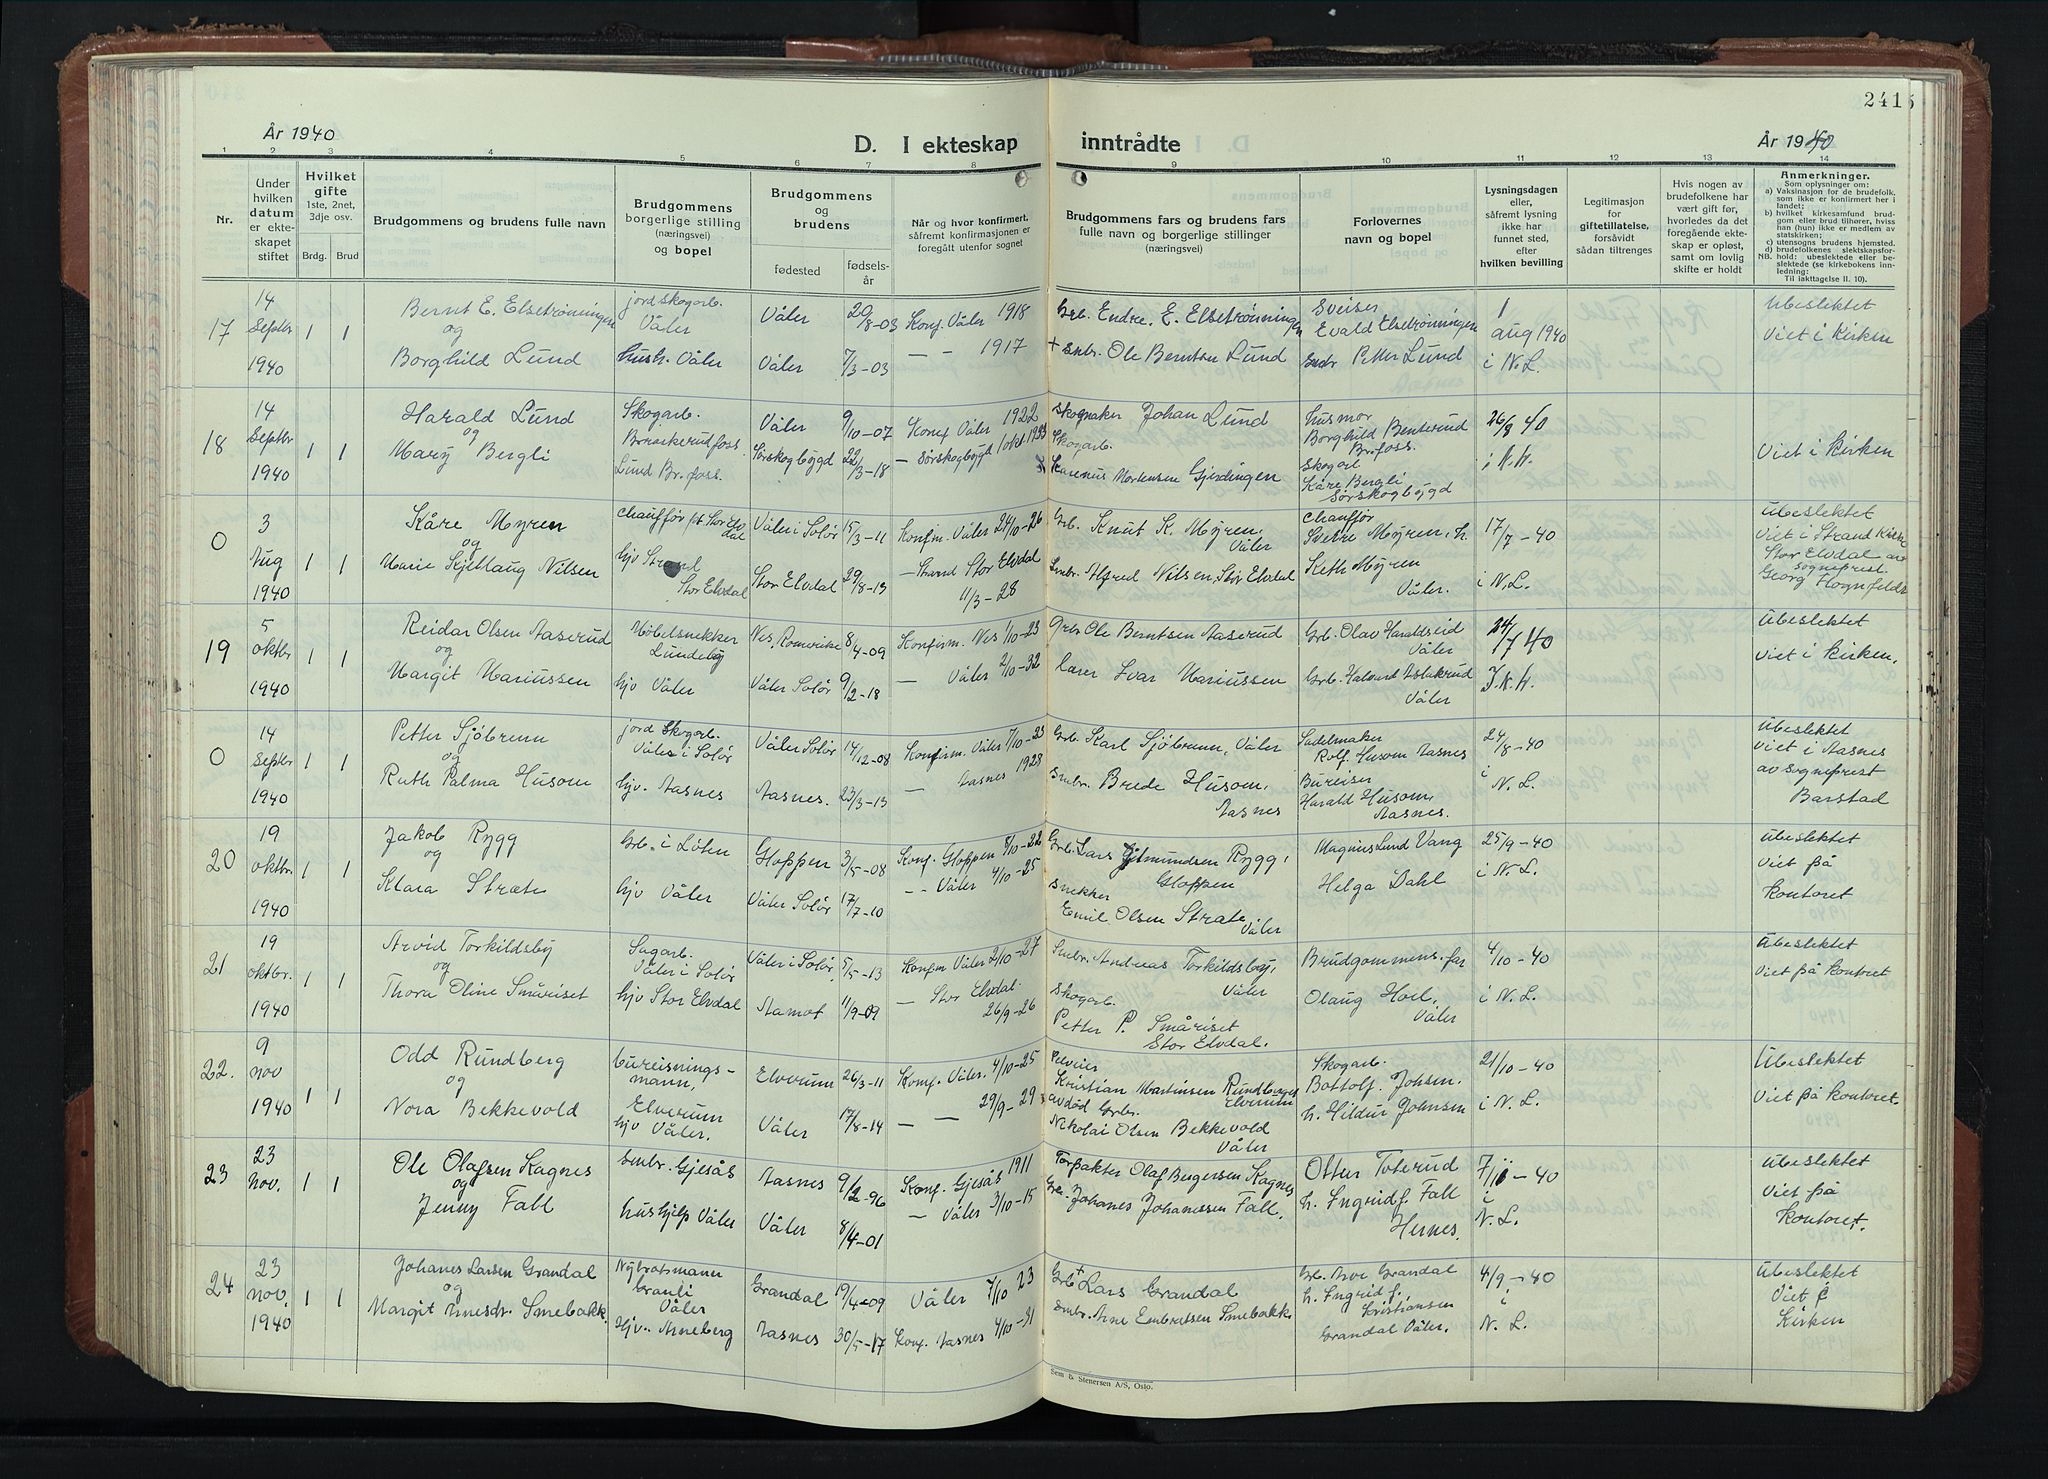 2415
År 1940
D. I ekteskap inntrådte
År 1940
1 2 3 4 5 6 7 8 9 10 11 12 13 14
Nr.
Under hvilken datum er ekteskapet stiftet
Hvilket gifte 1ste, 2net, 3dje osv.
Brdg. Brud
Brudgommens og brudens fulle navn
Brudgommens borgerlige stilling (næringsvei) og bopel
Brudgommens og brudens
fødested
fødselsår
Når og hvor konfirmert, såfremt konfirmasjonen er foregått utenfor sognet
Brudgommens fars og brudens fars fulle navn og borgerlige stillinger (næringsvei)
Forlovernes navn og bopel
Lysningsdagen eller, såfremt lysning ikke har funnet sted, efter hvilken bevilling
Legitimasjon for giftetillatelse, forsåvidt sådan tiltrenges
Hvis nogen av brudefolkene har vært gift før, hvorledes da det foregående ekteskap er opløst, samt om lovlig skifte er holdt
Anmerkninger.
Som oplysninger om:
a) Vaksinasjon for de brudefolk, som ikke er konfirmert her i landet;
b) hvilket kirkesamfund brudgom eller brud tilhører, hviss han (hun) ikke er medlem av statskirken;
c) utensogns brudens hjemsted.
d) brudefolkenes slektskapsforhold: ubeslektede eller beslektede (se kirkebokens innledning:
NB. Til iakttagelse II. 10).
17
14 Septbr 1940
1 1
Bernt E. Elsetrønningen
og
Borghild Lund
jord skogarb. Våler
hush. Våler
Våler 20/8-03
Våler 7/3-03
Konf. Våler 1918
— - 1917
Grb. Endre. E. Elsetrønningen
+ smbr. Ole Berntsen Lund
Sveiser
Evald Elsetrønningen
smbr Petter Lund
1 aug 1940
i N. L.
Ubeslektet
Viet i Kirken
18
14 Septbr 1940
1 1
Harald Lund
og
Mary Bergli
Skogarb.
Braskerudfoss.
Lund Br. foss.
Våler 9/10-07
Sørskogbygd 22/3-18
Konf Våler 1922
— Sørskogbygd 1 okt 1933
Skogmaker Johan Lund
Skogarb.
Karenus Mortensen Gjerdingen
husmor
Borghild Benterud
Br.foss.
Skogarb
Kåre Bergli
Sørskogbygd
26/8 40
i K. H.
Viet i Kirken
0
3 Aug 1940
1 1
Kåre Myren
og
Marie Skjellaug Nilsen
Chauffør pt Stor Elvdal
hjv Strand
Stor Elvdal
Våler i Solør 15/3-11
Stor Elvdal 29/8-13
Konfirm. Våler 24/10-26
— Strand Stor Elvdal
11/3-28
Grb. Knut K. Myren,
Våler
Smbr. Alfred Nilsen, Stor Elvdal
Chauffør
Sverre Myren, h.
Keth Myren
Våler.
17/7-40
i N. L.
Ubeslektet
Viet i Strand Kirke
Stor Elvdal av
sogneprest.
Georg Hognfeldt
19
5 oktbr 1940
1 1
Reidar Olsen Aaserud
og
Margit Mariussen
Møbelsnekker
Lundeby
hjv Våler
Nes, Romerike 8/4-09
Våler Solør 9/2-18
Konfirm. Nes 1/10-23
— Våler 2/10-32
Grbr Ole Berntsen Aaserud
Lærer Ivar Mariussen
Grb. Olav Haraldseid
Våler
Grb. Halvard Aslakrud
Våler
24/7 40
I. K. H.
Ubeslektet
Viet i Kirken,
0
14 Septbr 1940
1 1
Petter Sjøbrenn
og
Ruth Palma Husom
jord Skogarb.
Våler i Solør
hjv. Aasnes
Våler Solør 14/12-08
Aasnes. 23/3-13
Konfirm. Våler 7/10-23
— Aasnes 1928
Grb. Karl Sjøbrenn, Våler
Smbr. Brede Husom,
Aasnes
Sadelmaker
Rolf Husom Aasnes
Bureiser
Harald Husom,
Aasnes.
24/8-40
i
N. L.
Ubeslektet
Viet i Aasnes
av Sogneprest
Barstad
20
19 oktbr. 1940
1 1
Jakob Rygg
og
Klara Stræte
Grb. i Løten
hjv Våler
Gloppen 3/5-08
Våler Solør 17/7-10
Konf. Gloppen 8/10-22
- - Våler 4/10-25
Grb. Lars Gjtmundsen Rygg,
Gloppen
Snekker
Emil Olsen Stræte
Våler
Magnus Lund Vang
Helga Dahl
25/9-40
i N. L.
Ubeslektet
Viet på
kontoret
21
19 oktbr. 1940
1 1
Arvid Torkildsby
og
Thora Oline Småriset
Sagarb.
Våler i Solør
hjv Stor Elvdal
Våler i Solør 5/5-13
Aamot 11/9-09
Konfirm Våler 2/10-27
— Stor Elvdal.
26/9-26
Smbr. Andreas Torkildsby,
Våler
Skogarb.
Petter P. Småriset
Stor Elvdal.
Brudgommens far
Olaug Hoel,
Våler
4/10-40
i N. L.
Ubeslektet
Viet på kontoret
22.
9 nov 1940
1 1
Odd Rundberg
og
Nora Bekkevold
bureisningsmann,
Elverum
hjv Våler.
Elverum 26/3-11
Våler 17/8-14
Konf. Våler. 4/10-25
— — 29/9-29
Kristian Martinsen Rundberget
Elverum
avdød Grbr.
Nikolai Olsen Bekkevold
Våler
Skogarb.
Bottolf. Johsen.
h. Hildur Johnsen
21/10-40
i N. L.
Ubeslektet
Viet på kontoret.
23
23 nov.
1 1
Ole Olafsen Kagnes
og
Jenny Fall
Smbr. Gjesås
hushjelp Våler
Aasnes 9/2-96
Våler 8/4-01
Konf. Gjesås 1911
— Våler 3/10-15
Forpakter Olaf Bergersen Kagnes
Grb. Johanes Johanessen Fall.
Otter Toterud
h. Ingrid f. Fall
Hernes.
7/11-40
i
N. L.
Ubeslektet
Viet på
kontoret.
24
23 nov. 1940
1 1
Johanes Larsen Grandal
og
Margit Arnesdr. Smebakk.
Nybrottsmann
Granli
Våler
Hjv. Arneberg
Grandal 19/4-09
Aasnes 30/5-17
Våler 7/10 23
Konf. Aasnes 4/10-31
Grb + Lars Grandal
Smbr. Arne Embretsen Smebakk.
Grb. Arve Grandal
h. Ingrid f.
Kristiansen
Grandal Våler.
4/9-40
i
N. L.
Ubeslektet
Viet i
Kirken
Sem & Stenersen A/S, Oslo.